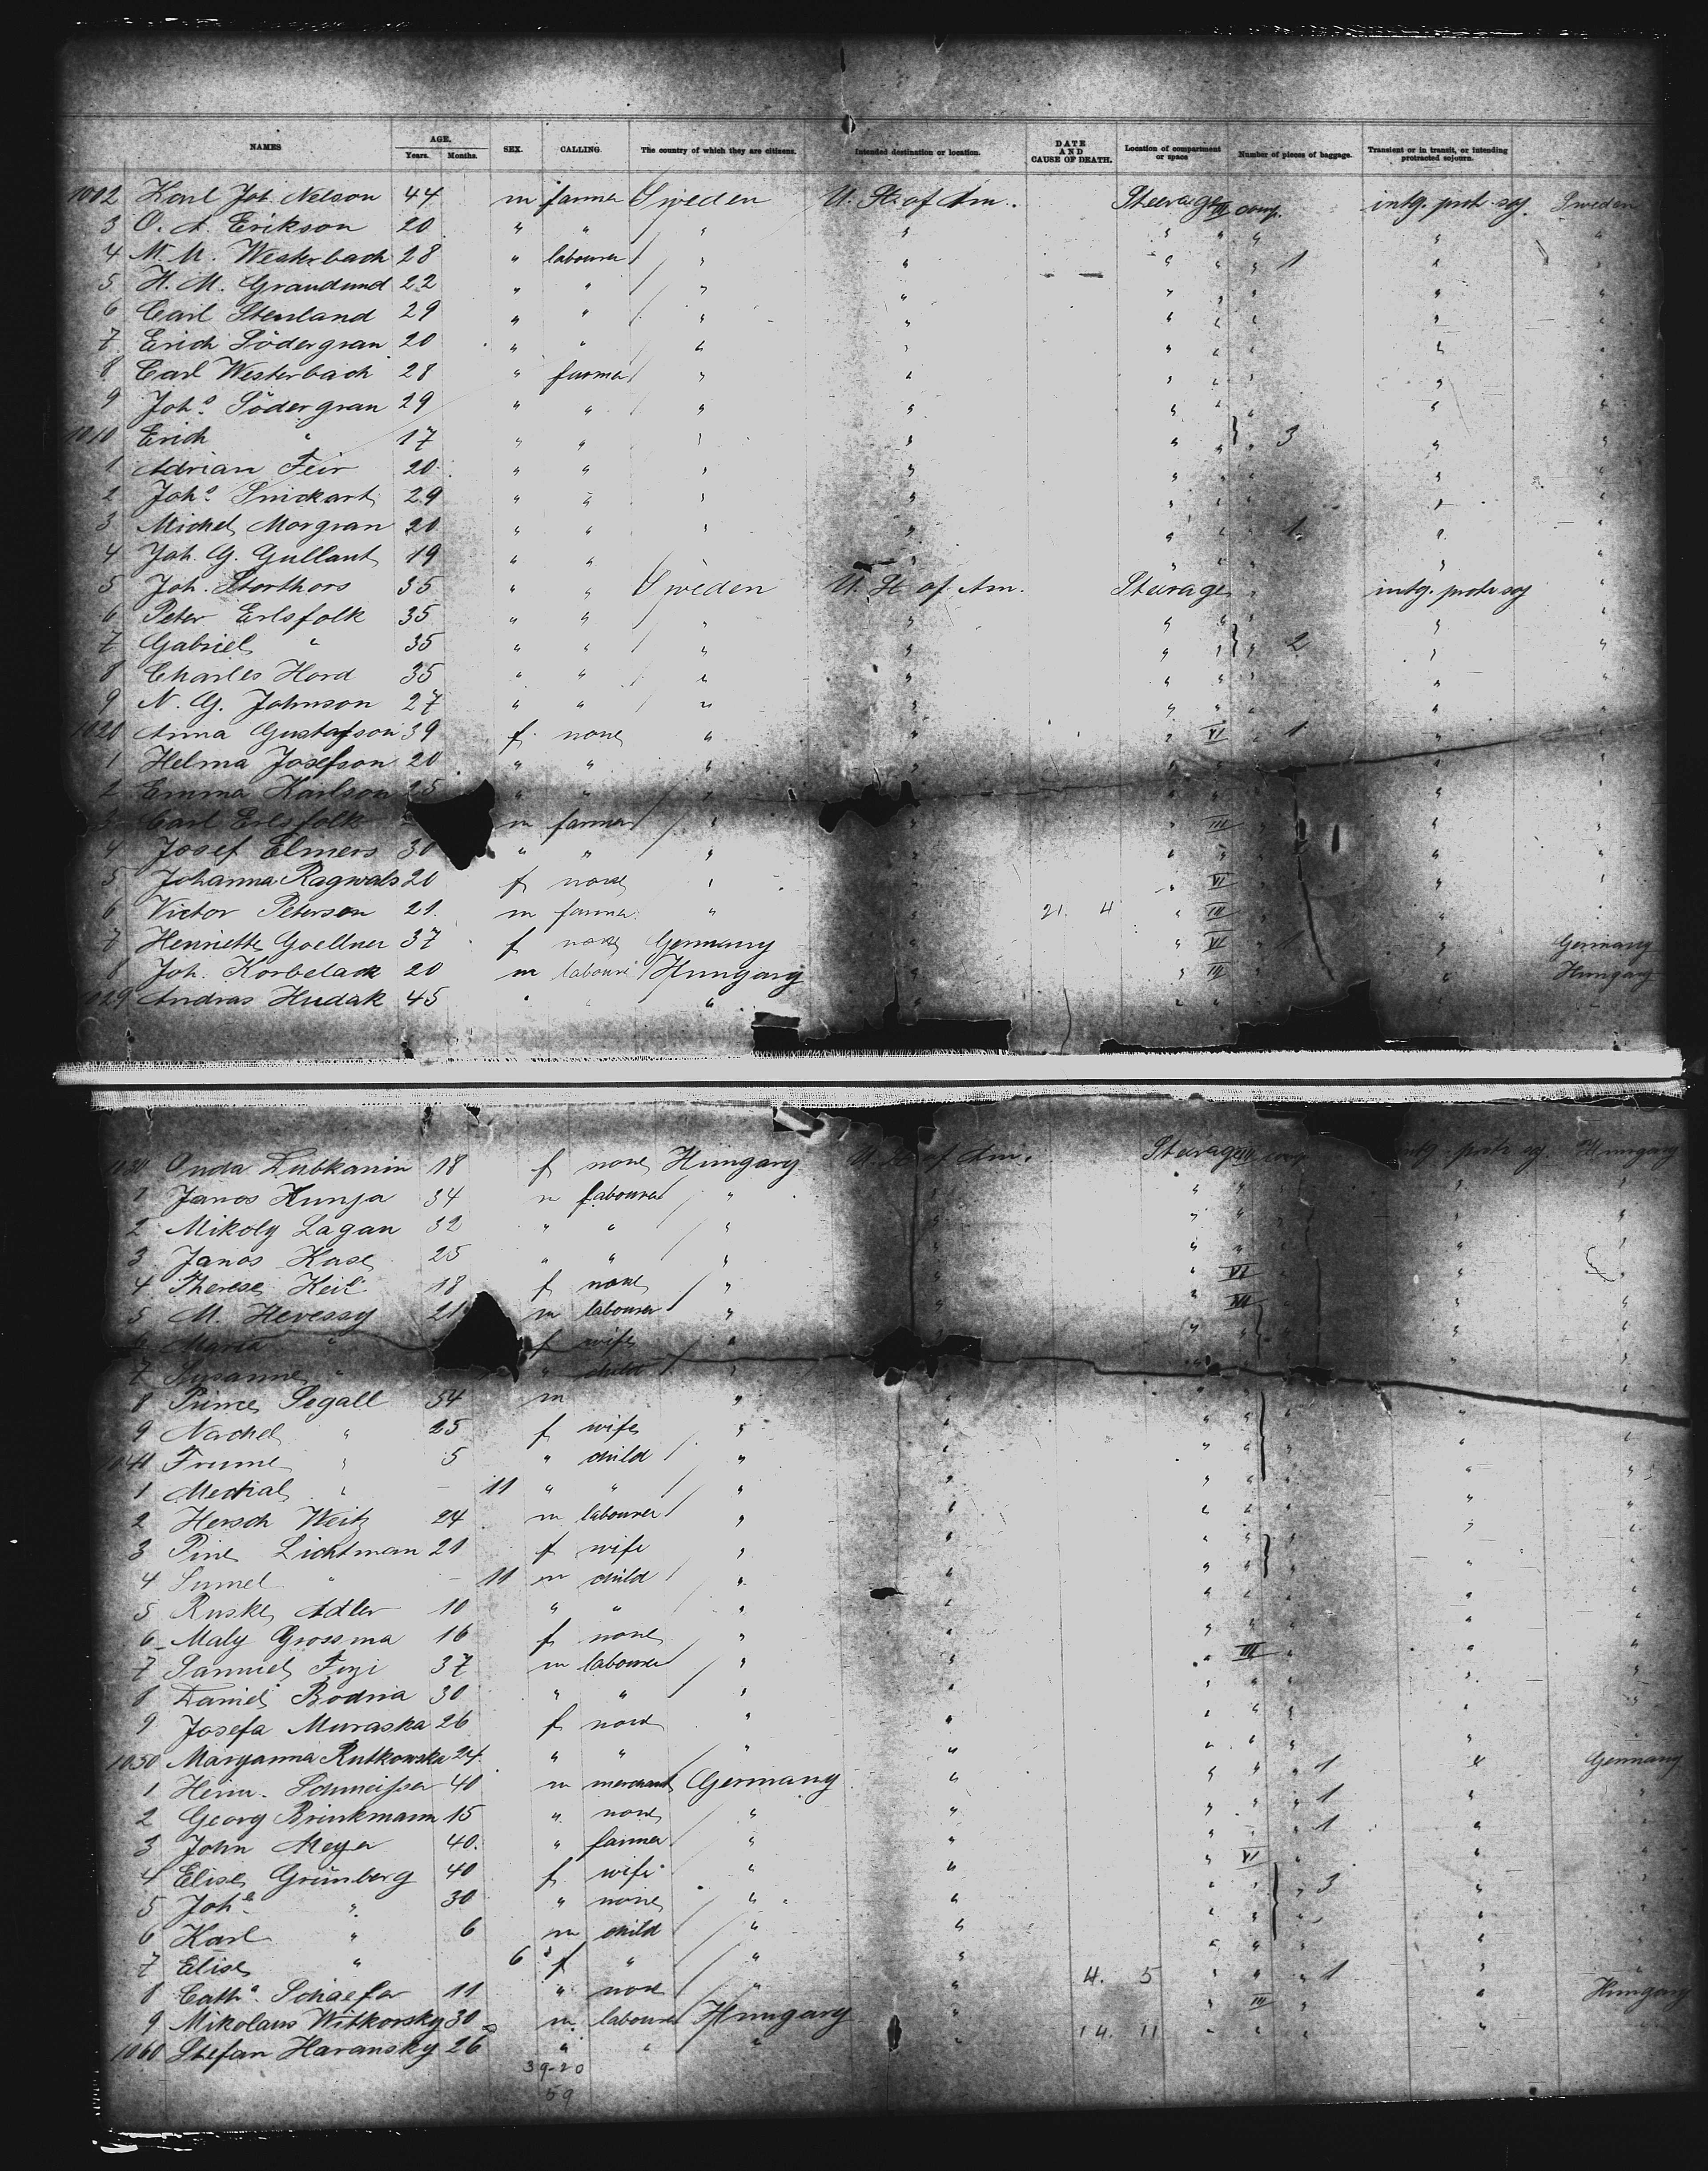 NAMES AGE. SEX. CALLING. The country of which they are citizens. Intended destination or location. DATE AND CAUSE OF DEATH. Location of compartment or space Number of pieces of baggage. Transient or in transit, or intending protracted sojourn.
Years. Months.
1002 Karl Joh. Nelson 44 m farmer Sweden U. St. of Am. Steerage III comp. intg. protr. soj. Sweden
3 O. A. Erikson 20 " " " " " " " " "
4 M. M. Westerbach 28 " labourer " " " " " 1 " "
5 H. M. Graudund 22 " " " " " " " "
6 Carl Stenland 29 " " " " " " " " "
7 Erich Södergran 20 " " " " " " " "
8 Carl Westerbach 28 " farmer " " " " " "
9 Joh.s Södergran 29 " " " " " " " " "
1010 Erich " 17 " " " " " " " 3 " "
1 Adrian Feir 20 " " " " " " " "
2 Joh.s Snickart 29 " " " " " " " "
3 Michel Morgran 20 " " " " " " 1 " "
4 Joh. G. Gullant 19 " " " " " " "
5 Joh. Storthors 35 " " Sweden U. St. of Am. Steerage " intg. protr. soj "
6 Peter Erlsfolk 35 " " " " " " " "
7 Gabriel " 35 " " " " " " " 2 " "
8 Charles Hord 35 " " " " " " " "
9 N. G. Johnson 27 " " " " " " " "
1020 Anna Gustafson 39 f none " " " VI " 1 " "
1 Helma Josefson 20 " " " " " " " "
2 Emma Karlson 25 " " " " " " "
3 Carl Erlsfolk m farmer " " " III " "
4 Josef Elmers 30 " " " " " " " "
5 Johanna Ragwals 20 f none " " " VI " "
6 Victor Peterson 21 m farmer " " 21. 4 " III " "
7 Henriette Goellner 37 f none Germany " " VI " 1 " Germany
8 Joh. Korbelack 20 m labourer Hungary " " III " Hungary
1029 Andras Hudak 45 " " " " " " " "
Onda Dubkanin 18 f none Hungary U. St. of Am. Steerage comp intg. protr. soj Hungary
1 Janos Kunja 34 m labourer " " " " " "
2 Mikoly Lagan 32 " " " " " " " "
3 Janos Kase 25 " " " " " " " "
4 Therese Keil 18 f none " " " VI " "
5 M. Hevessy 21 m labourer " " " VII " "
6 Maria " f wife " " " " "
7 Susanne " " child " " " "
8 Prince Segall 54 m " " " " " "
9 Nachel " 25 f wife " " " " " "
Frume " 5 " child " " " " " "
1 Mectial " – 11 " " " " " " " "
2 Hersch Weitz 24 m labourer " " " " " "
3 Pine Lichtman 21 f wife " " " " " "
4 Sumel " – 11 m child " " " " " "
5 Ruske Adler 10 " " " " " " " "
6 Maly Grossma 16 f none " " " " " "
7 Samuel Fuzi 37 m labourer " " " III " " "
8 Daniel Bodna 30 " " " " " " " "
9 Josefa Muraska 26 f none " " " " " "
1050 Maryanna Rutkowska 24 " " " " " " " "
1 Heinr. Schmeisser 40 m merchant Germany " " " " 1 " Germany
2 Georg Brinkmann 15 " none " " " " " 1 " "
3 John Meyer 40 " farmer " " " " " 1 " "
4 Elise Grünberg 40 f wife " " " VI " " "
5 Joh.e " 30 " none " " " " " 3 " "
6 Karl " 6 m child " " " " " " "
7 Elise " 6 f " " " " " " "
8 Cath.a Schaefer 11 " none " " 4. 5 " " " 1 " "
9 Mikolaus Witkorsky 30 m labourer Hungary " " III " " Hungary
1060 Stefan Haransky 26 " " " " 14. 11 " " " " "
39-20
59